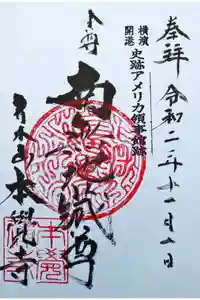 奉拝
令和二年十一月一日
横濱
開港
史跡アメリカ領事館跡
本尊
南無地蔵尊
青木山
本覺寺